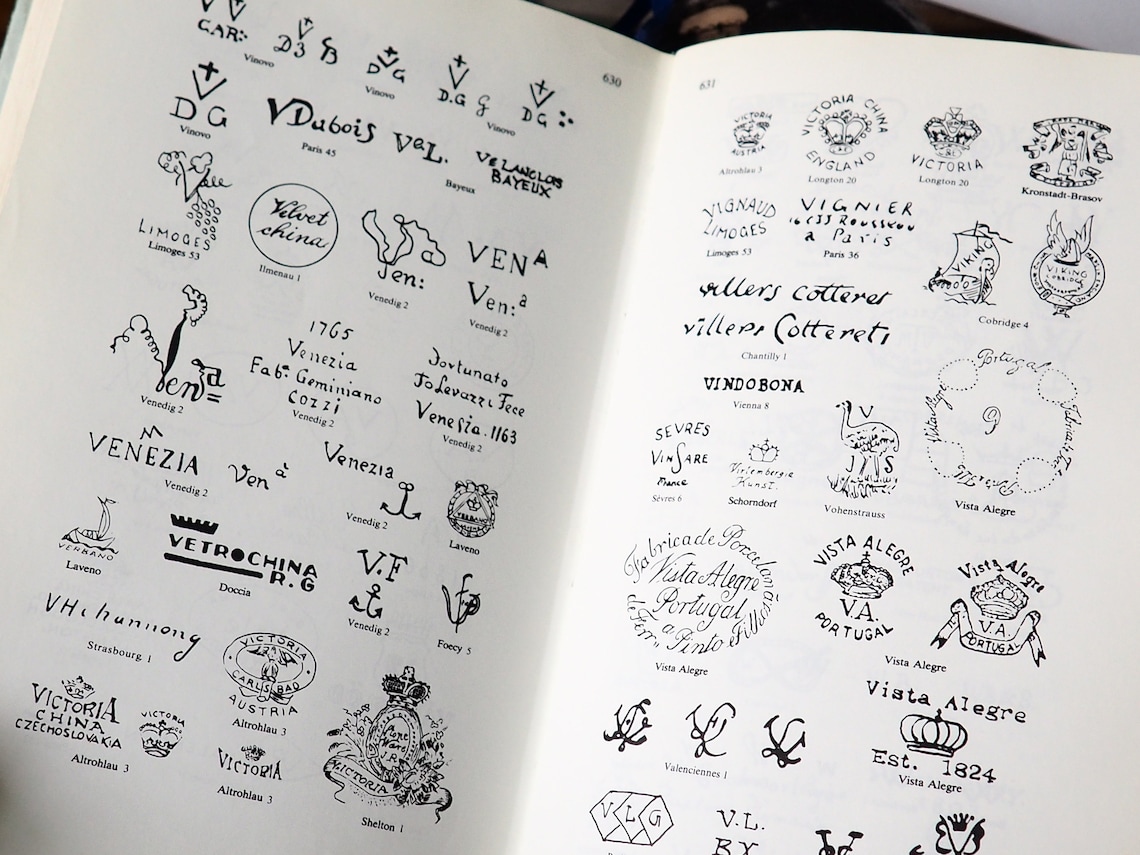 630
GAR:
Vinovo
D3 B
DG
Vinovo
D.G G
DG
Vinovo
DG
Vinovo
VDubois
Paris 45
VeL.
VE LANGLOIS
BAYEUX
Bayeux
LIMOGES
Limoges 53
Velvet
china
Ilmenau 1
Ven:
Venedig 2
VENA
Ven:a
Venedig 2
Vena
Venedig 2
1765
Venezia
Faba Geminiano
Cozzi
Venedig 2
Fortunato
Tolerazzi Fece
Venesia. 1763
Venedig 2
VENEZIA
Venedig 2
Venà
Venezia
Venedig 2
VERBANO
Laveno
VERBANO
Laveno
VETROCHINA
R.G
Doccia
V.F
Venedig 2
Foecy 5
Strasbourg 1
VICTORIA
CARLSBAD
AUSTRIA
Altrohlau 3
VICTORIA
CHINA
CZECHOSLOVAKIA
VICTORIA
Altrohlau 3
VICTORIA
Altrohlau 3
VICTORIA
Shelton 1
631
VICTORIA
AUSTRIA
Altrohlau 3
VICTORIA CHINA
ENGLAND
Longton 20
VICTORIA
Longton 20
Kronstadt-Brasov
VIGNAUD
LIMOGES
Limoges 53
VIGNIER
a Paris
Paris 36
VIKING
VIKING
COBRIDGE
Cobridge 4
villers cotteret
villers Cotterets
Chantilly 1
VINDOBONA
Vienna 8
SEVRES
VINSARE
France
Sèvres 6
Wirtembergis
Kunst.
Schorndorf
V
J S
Vohenstrauss
Portugal
Vista Alegre
Vista Alegre
Fabrica de Porcelana
Vista Alegre
Portugal
Pinto
Filhos
Vista Alegre
VISTA ALEGRE
V.A.
PORTUGAL
Vista Alegre
V.A.
PORTUGAL
Vista Alegre
Valenciennes 1
Vista Alegre
Est. 1824
Vista Alegre
VLG
V.L.
BY